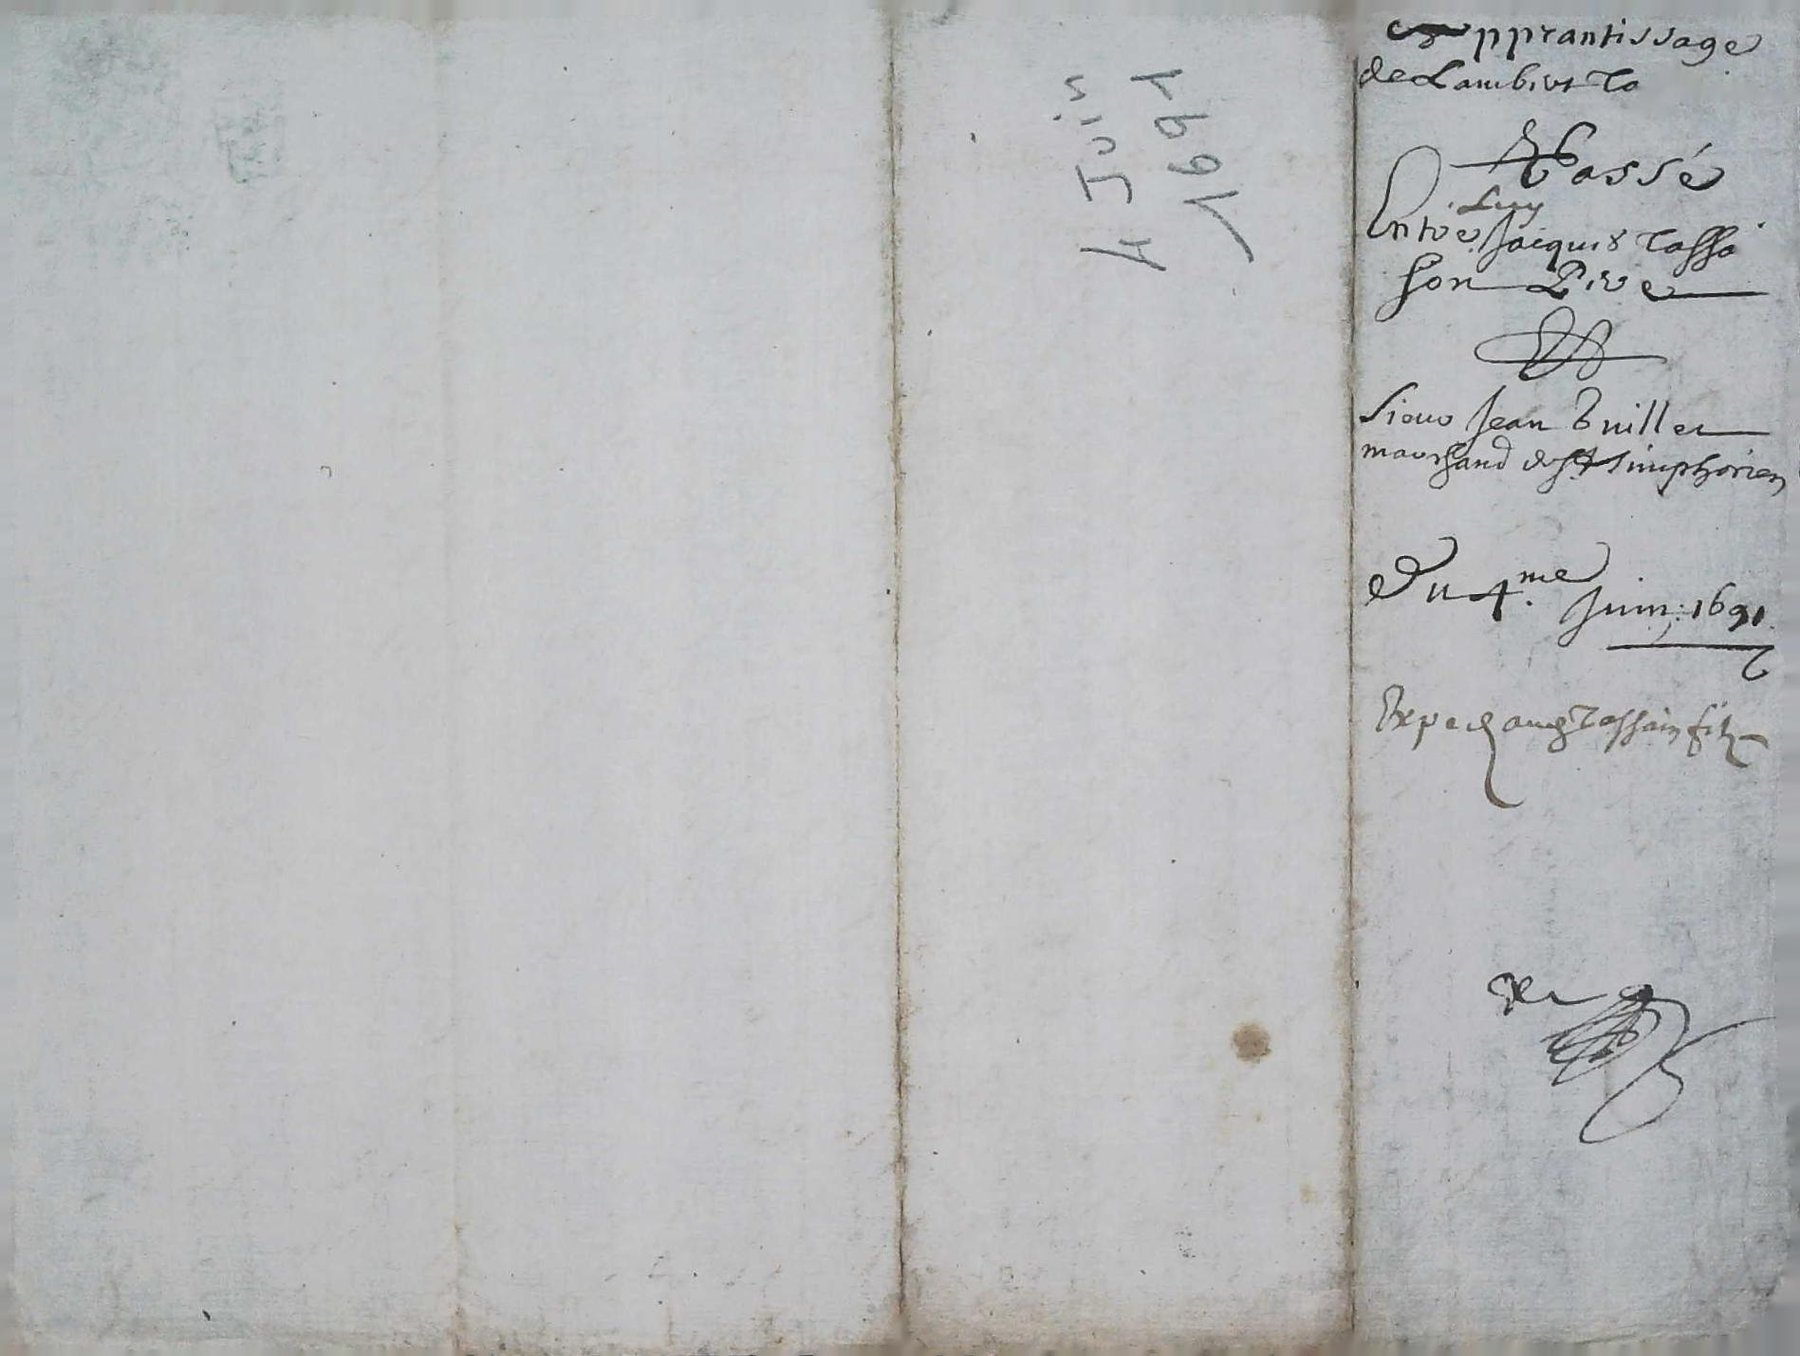 4 Juin
1691
Apprantissage
de Lambert Ta
Passé
Luy
Entre Jacques Tassa
son Pere
Et
Sieur Jean Builler
marchand de St Simphorien
Du 4.me Juin: 1691
Exped Tassain filz